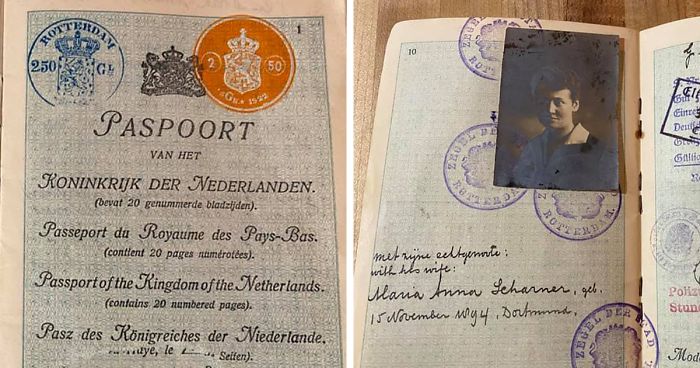 ROTTERDAM
250 Gl
2 50
Gl: 1922
1
PASPOORT
VAN HET
KONINKRIJK DER NEDERLANDEN.
(bevat 20 genummerde bladzijden).
Passeport du Royaume des Pays-Bas.
(contient 20 pages numérotées).
Passport of the Kingdom of the Netherlands.
(contains 20 numbered pages).
Pasz des Königreiches der Niederlande.
Seiten).
10
ZEGEL DER
ROTTERDAM
ZEGEL DER STAD
ROTTERDAM
ROTTERDAM
met zijne echtgenoote:
with his wife:
Maria Anna Scharner, geb.
15 November 1894, Dortmund.
ZEGEL DER STAD
Gut
Einre
Deuts
Gülti
Poliz
Stun
Mod